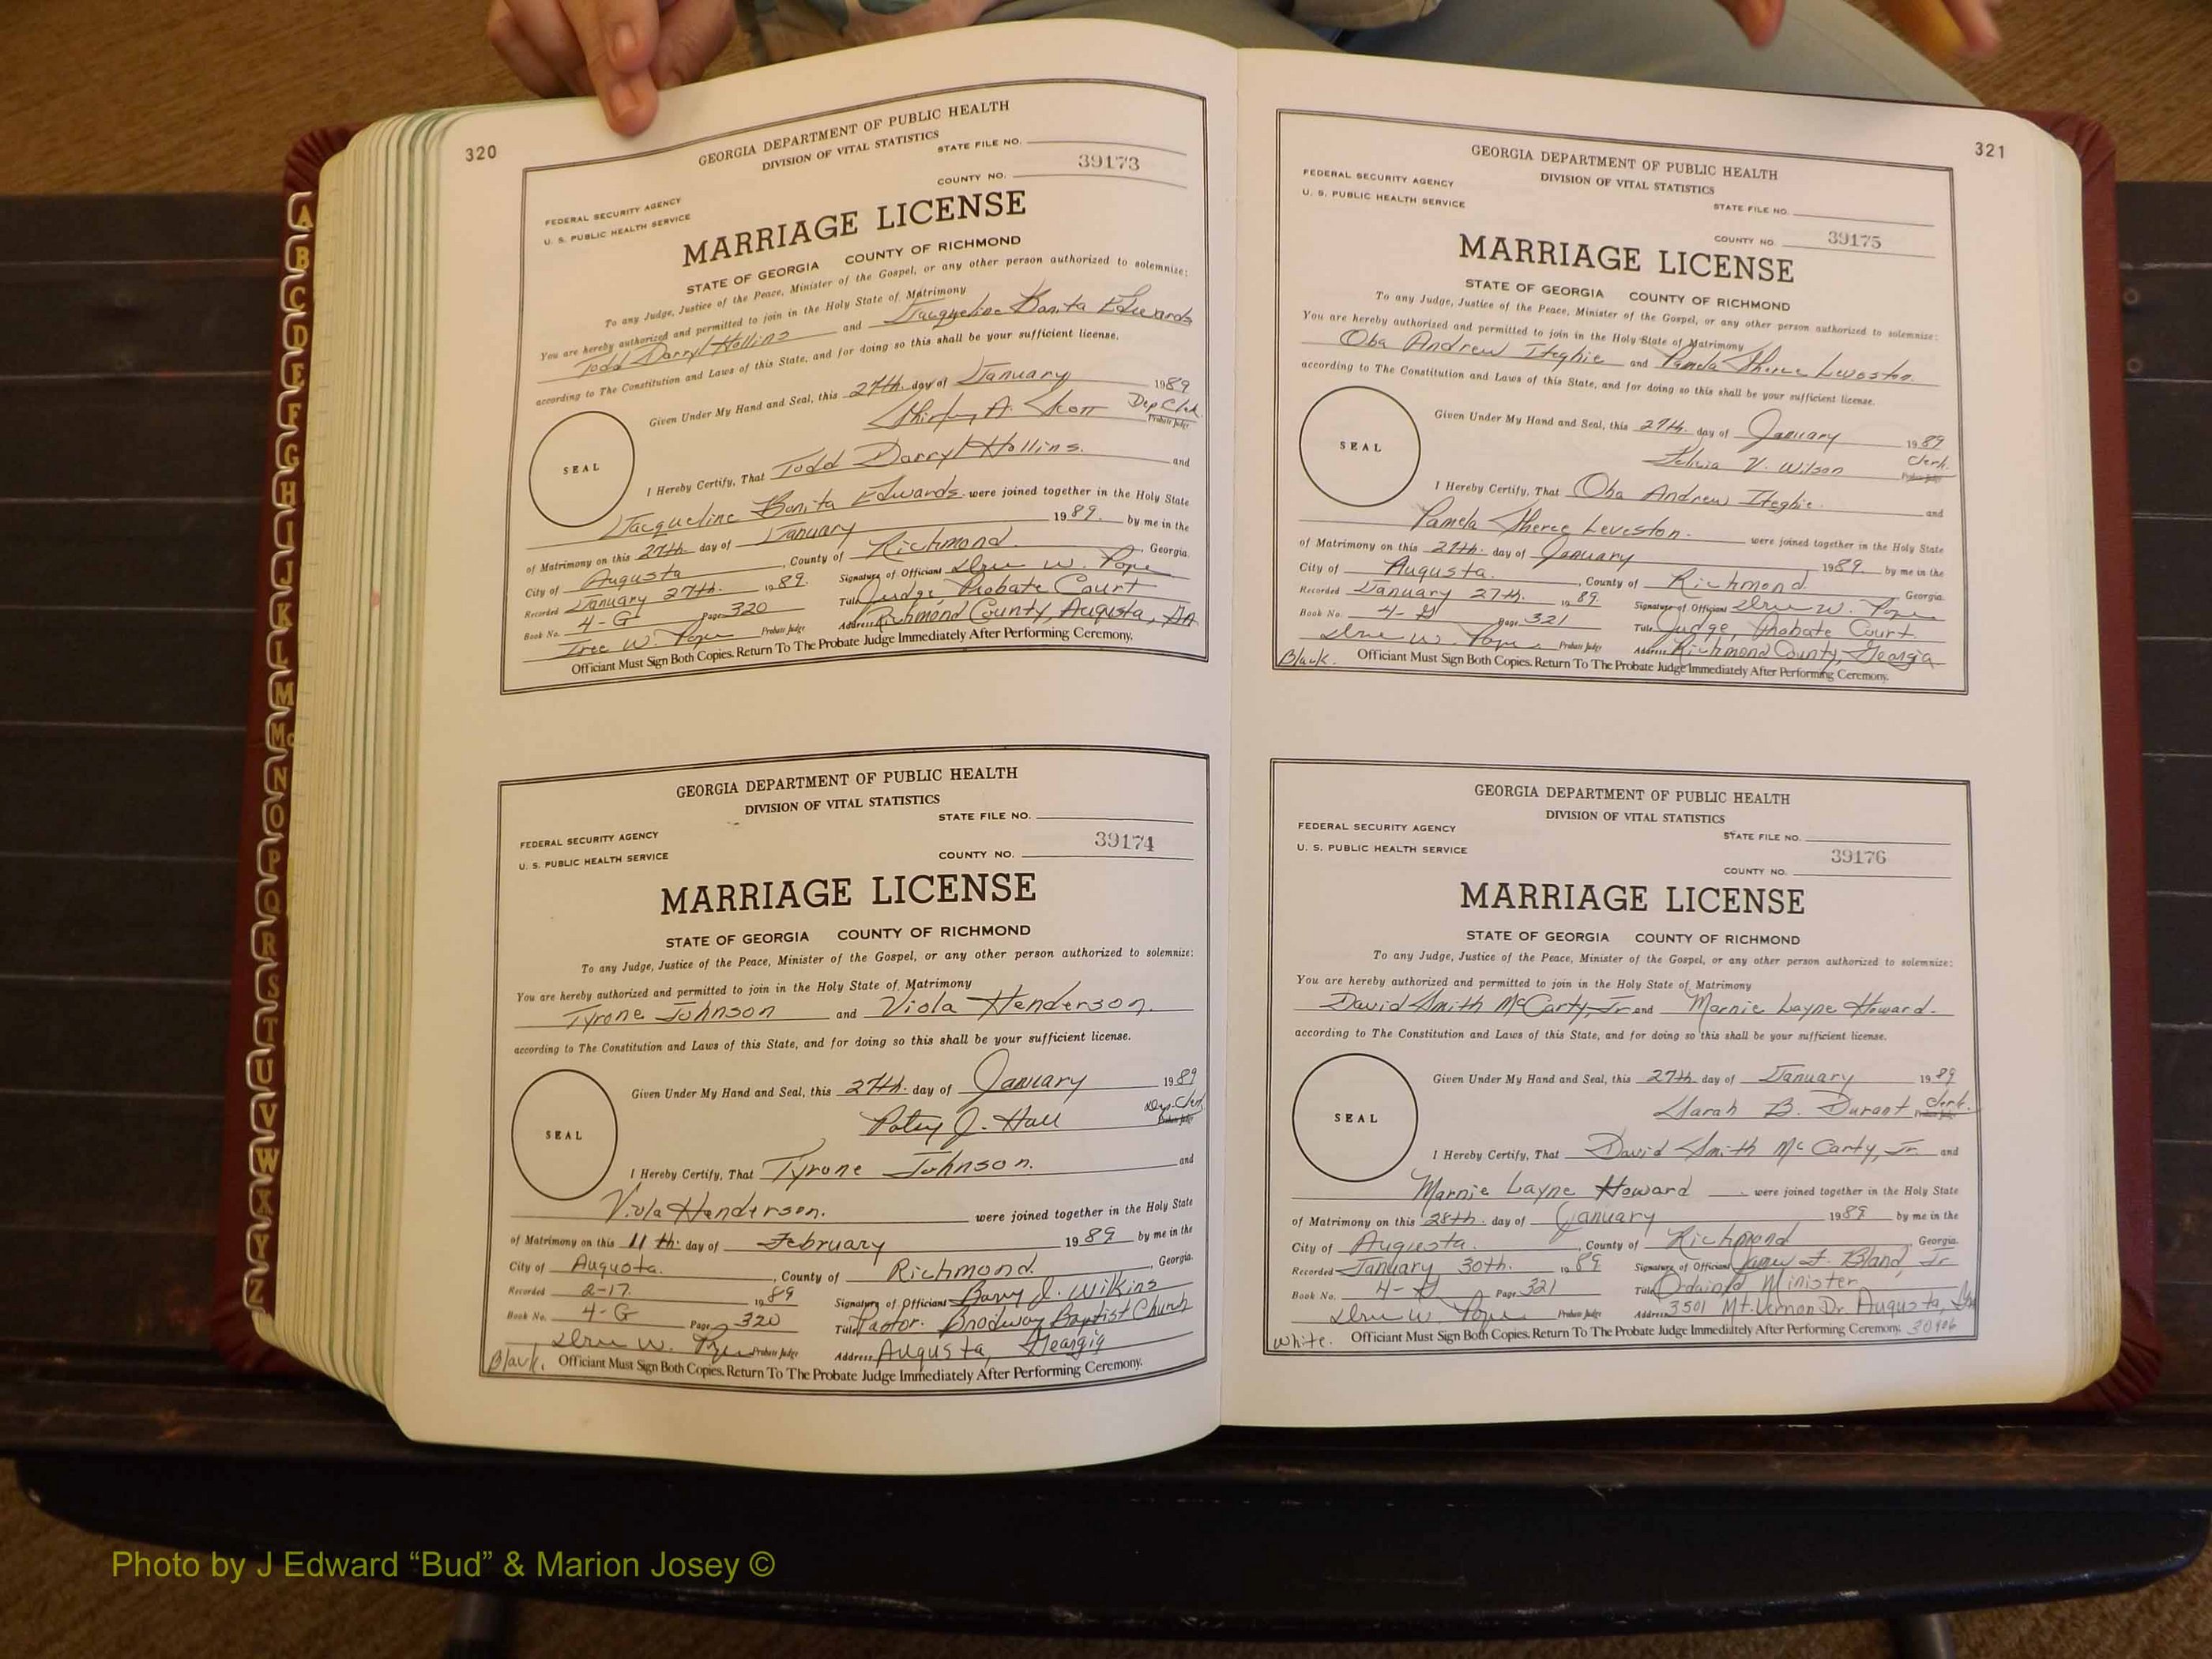 320
GEORGIA DEPARTMENT OF PUBLIC HEALTH
DIVISION OF VITAL STATISTICS
STATE FILE NO.
FEDERAL SECURITY AGENCY
COUNTY NO. 39173
U. S. PUBLIC HEALTH SERVICE
MARRIAGE LICENSE
STATE OF GEORGIA COUNTY OF RICHMOND
To any Judge, Justice of the Peace, Minister of the Gospel, or any other person authorized to solemnize:
You are hereby authorized and permitted to join in the Holy State of Matrimony
Todd Darryl Hollins and Jacqueline Bonita Edwards
according to The Constitution and Laws of this State, and for doing so this shall be your sufficient license.
Given Under My Hand and Seal, this 27th. day of January 1989
Shirley A. Scott Dep Clerk.
Probate Judge
SEAL
I Hereby Certify, That Todd Darryl Hollins. and
Jacqueline Bonita Edwards. were joined together in the Holy State
of Matrimony on this 27th. day of January 1989. by me in the
City of Augusta, County of Richmond. Georgia.
Recorded January 27th. 1989. Signature of Officiant W. Pope
Book No. 4-G Page 320 Title Judge, Probate Court
W. Pope Probate Judge Address Richmond County, Augusta, GA
Officiant Must Sign Both Copies. Return To The Probate Judge Immediately After Performing Ceremony.
GEORGIA DEPARTMENT OF PUBLIC HEALTH
DIVISION OF VITAL STATISTICS
STATE FILE NO.
FEDERAL SECURITY AGENCY
U. S. PUBLIC HEALTH SERVICE
COUNTY NO. 39174
MARRIAGE LICENSE
STATE OF GEORGIA COUNTY OF RICHMOND
To any Judge, Justice of the Peace, Minister of the Gospel, or any other person authorized to solemnize:
You are hereby authorized and permitted to join in the Holy State of Matrimony
Tyrone Johnson and Viola Henderson.
according to The Constitution and Laws of this State, and for doing so this shall be your sufficient license.
Given Under My Hand and Seal, this 27th. day of January 1989
Patsy J. Hall Dep. Clerk
Probate Judge
SEAL
I Hereby Certify, That Tyrone Johnson. and
Viola Henderson. were joined together in the Holy State
of Matrimony on this 11th. day of February 1989 by me in the
City of Augusta. County of Richmond. Georgia.
Recorded 2-17. 1989 Signature of Officiant Barry J. Wilkins
Book No. 4-G Page 320 Title Pastor. Broadway Baptist Church
W. Pope Probate Judge Address Augusta, Georgia
Black. Officiant Must Sign Both Copies. Return To The Probate Judge Immediately After Performing Ceremony.
321
GEORGIA DEPARTMENT OF PUBLIC HEALTH
DIVISION OF VITAL STATISTICS
FEDERAL SECURITY AGENCY
U. S. PUBLIC HEALTH SERVICE
STATE FILE NO.
COUNTY NO. 39175
MARRIAGE LICENSE
STATE OF GEORGIA COUNTY OF RICHMOND
To any Judge, Justice of the Peace, Minister of the Gospel, or any other person authorized to solemnize:
You are hereby authorized and permitted to join in the Holy State of Matrimony
Oba Andrew Iteghie and Pamela Sheree Leveston.
according to The Constitution and Laws of this State, and for doing so this shall be your sufficient license.
Given Under My Hand and Seal, this 27th. day of January 1989
V. Wilson Clerk.
Probate Judge
SEAL
I Hereby Certify, That Oba Andrew Iteghie. and
Pamela Sheree Leveston. were joined together in the Holy State
of Matrimony on this 27th. day of January 1989. by me in the
City of Augusta. County of Richmond. Georgia.
Recorded January 27th. 1989. Signature of Officiant W. Pope
Book No. 4-G Page 321 Title Judge, Probate Court.
W. Pope Probate Judge Address Richmond County, Georgia
Black. Officiant Must Sign Both Copies. Return To The Probate Judge Immediately After Performing Ceremony.
GEORGIA DEPARTMENT OF PUBLIC HEALTH
DIVISION OF VITAL STATISTICS
FEDERAL SECURITY AGENCY
STATE FILE NO.
U. S. PUBLIC HEALTH SERVICE
39176
COUNTY NO.
MARRIAGE LICENSE
STATE OF GEORGIA COUNTY OF RICHMOND
To any Judge, Justice of the Peace, Minister of the Gospel, or any other person authorized to solemnize:
You are hereby authorized and permitted to join in the Holy State of Matrimony
David Smith McCarty, Jr. and Marnie Layne Howard.
according to The Constitution and Laws of this State, and for doing so this shall be your sufficient license.
Given Under My Hand and Seal, this 27th. day of January 1989
Sarah B. Durant Clerk.
Probate Judge
SEAL
I Hereby Certify, That David Smith McCarty, Jr. and
Marnie Layne Howard were joined together in the Holy State
of Matrimony on this 28th. day of January 1989 by me in the
City of Augusta. County of Richmond Georgia.
Recorded January 30th. 1989 Signature of Officiant James F. Bland, Jr
Book No. 4-G Page 321 Title Ordained Minister
W. Pope Probate Judge Address 3501 Mt. Vernon Dr. Augusta, Ga
White. Officiant Must Sign Both Copies. Return To The Probate Judge Immediately After Performing Ceremony. 30906
A
B
C
D
E
F
G
H
I
J
K
L
M
Mc
N
O
P
Q
R
S
T
U
V
W
X
Y
Z
Photo by J Edward “Bud” & Marion Josey ©